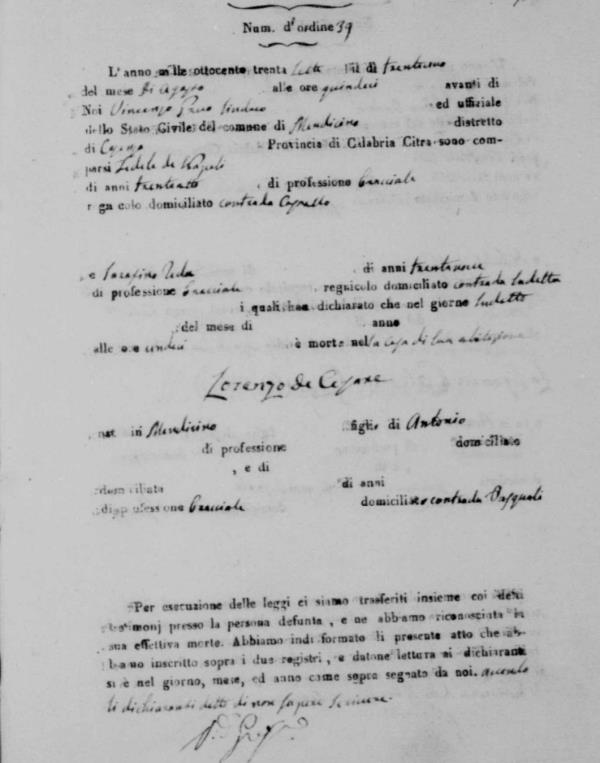 Num. d'ordine 39
L'anno mille ottocento trenta sette il dì trentuno
del mese di Agosto alle ore quindici avanti di
Noi Vincenzo Sindaco ed uffiziale
dello Stato Civile del comune di Mendicino distretto
di Cosenza Provincia di Calabria Citra sono com-
parsi Fedele de Napoli
di anni trentotto di professione bracciale
regnicolo domiciliato contrada
e Serafino di anni trentanove
di professione bracciale regnicolo domiciliato contrada sudetta
i quali han dichiarato che nel giorno sudetto
del mese di anno
alle ore undici è morto nella casa di sua abitazione
Lorenzo de Cesare
nat in Mendicino figlio di Antonio
di professione domiciliato
, e di
domiciliata di anni
di professione bracciale domiciliato contrada Pasquali
Per esecuzione delle leggi ci siamo trasferiti insieme coi detti
testimonj presso la persona defunta, e ne abbiamo riconosciuta la
sua effettiva morte. Abbiamo indi formato il presente atto che ab-
biamo inscritto sopra i due registri, e datone lettura ai dichiaranti
si è nel giorno, mese, ed anno come sopra segnato da noi. avendo
li dichiaranti detto di non sapere scrivere.